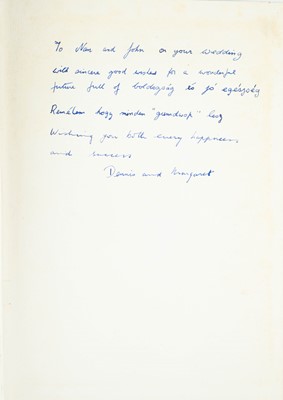 To Nan and John on your wedding
with sincere good wishes for a wonderful
future full of boldogság és jó egészség
Remélem hogy minden "grandusp" lesz
Wishing you both every happiness
and success
Dennis and Margaret